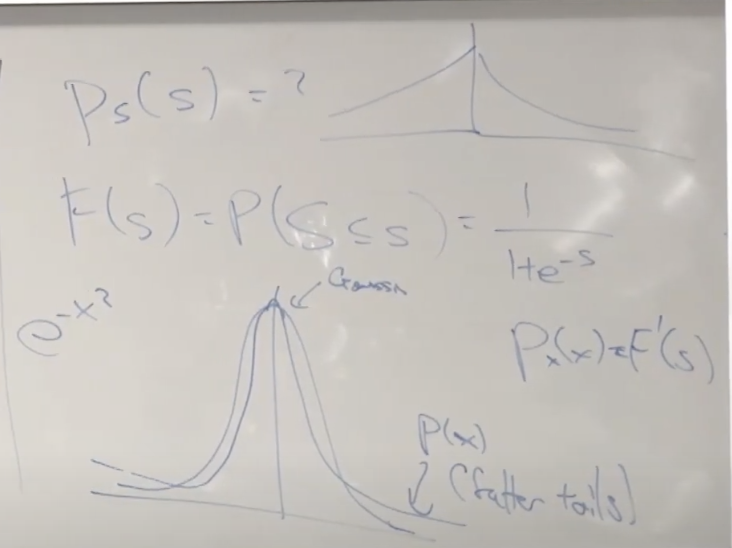 Ps(s) = ?
F(s) = P(S ≤ s) = 1/(1+e^-s)
e^-x²
Px(x) = F'(s)
P(x)
(fatter tails)